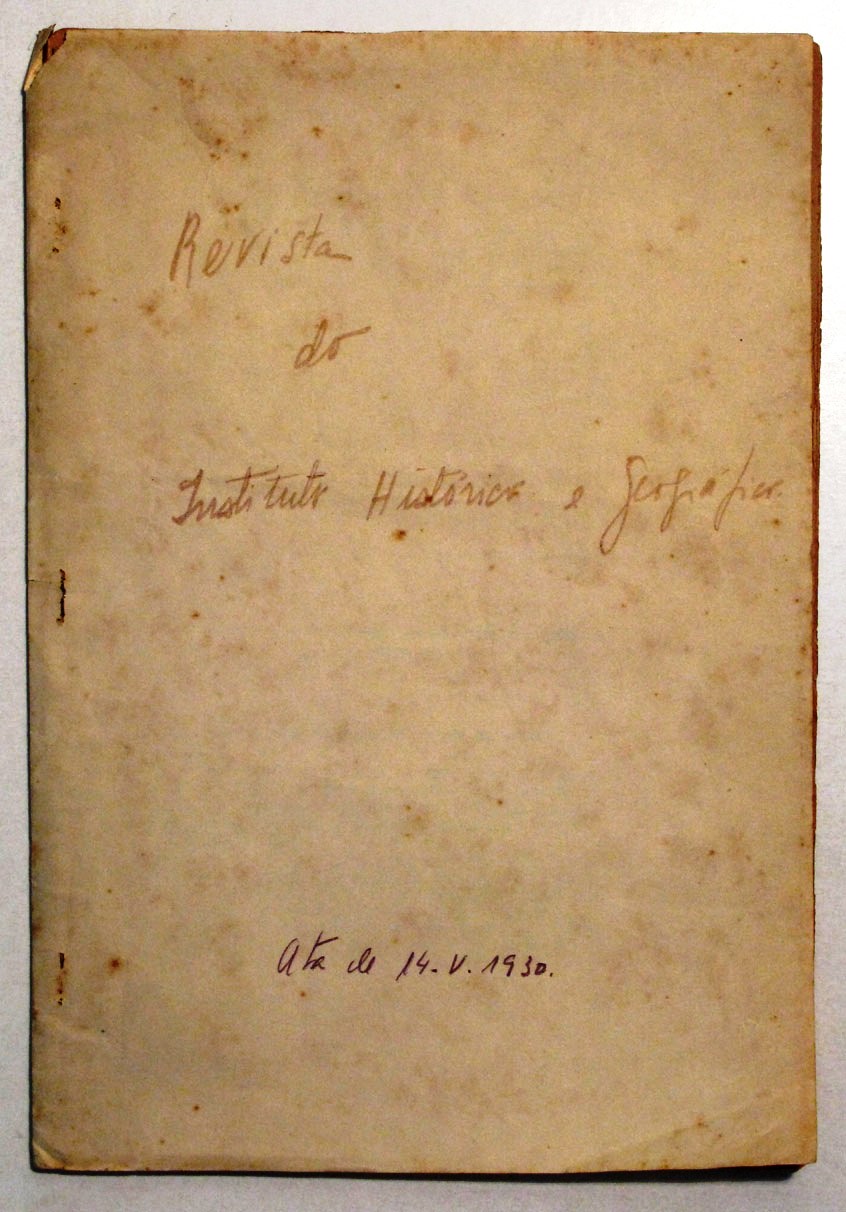 Revista
do
Instituto Histórico e Geográfico
Ata de 14-V.1930.